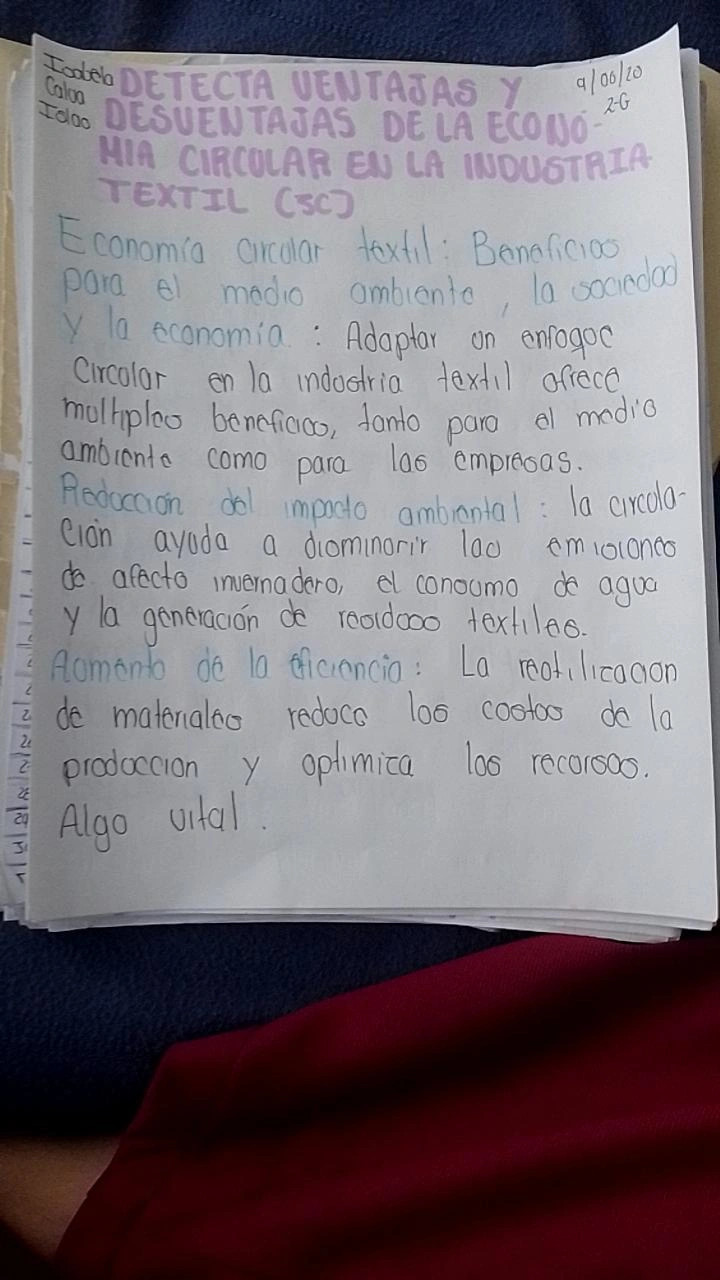 Isabela
Caloa
Islas
9/06/20
2-G
DETECTA VENTAJAS Y
DESVENTAJAS DE LA ECONO-
MIA CIRCULAR EN LA INDUSTRIA
TEXTIL (SC)
Economía circular textil: Beneficios
para el medio ambiente, la sociedad
y la economía: Adaptar un enfoque
circular en la industria textil ofrece
multiples beneficios, tanto para el medio
ambiente como para las empresas.
Reducción del impacto ambiental: la circula-
ción ayuda a disminuir las emisiones
de afecto invernadero, el consumo de agua
y la generación de residuos textiles.
Aumento de la eficiencia: La reutilización
de materiales reduce los costos de la
produccion y optimiza los recursos.
Algo vital.